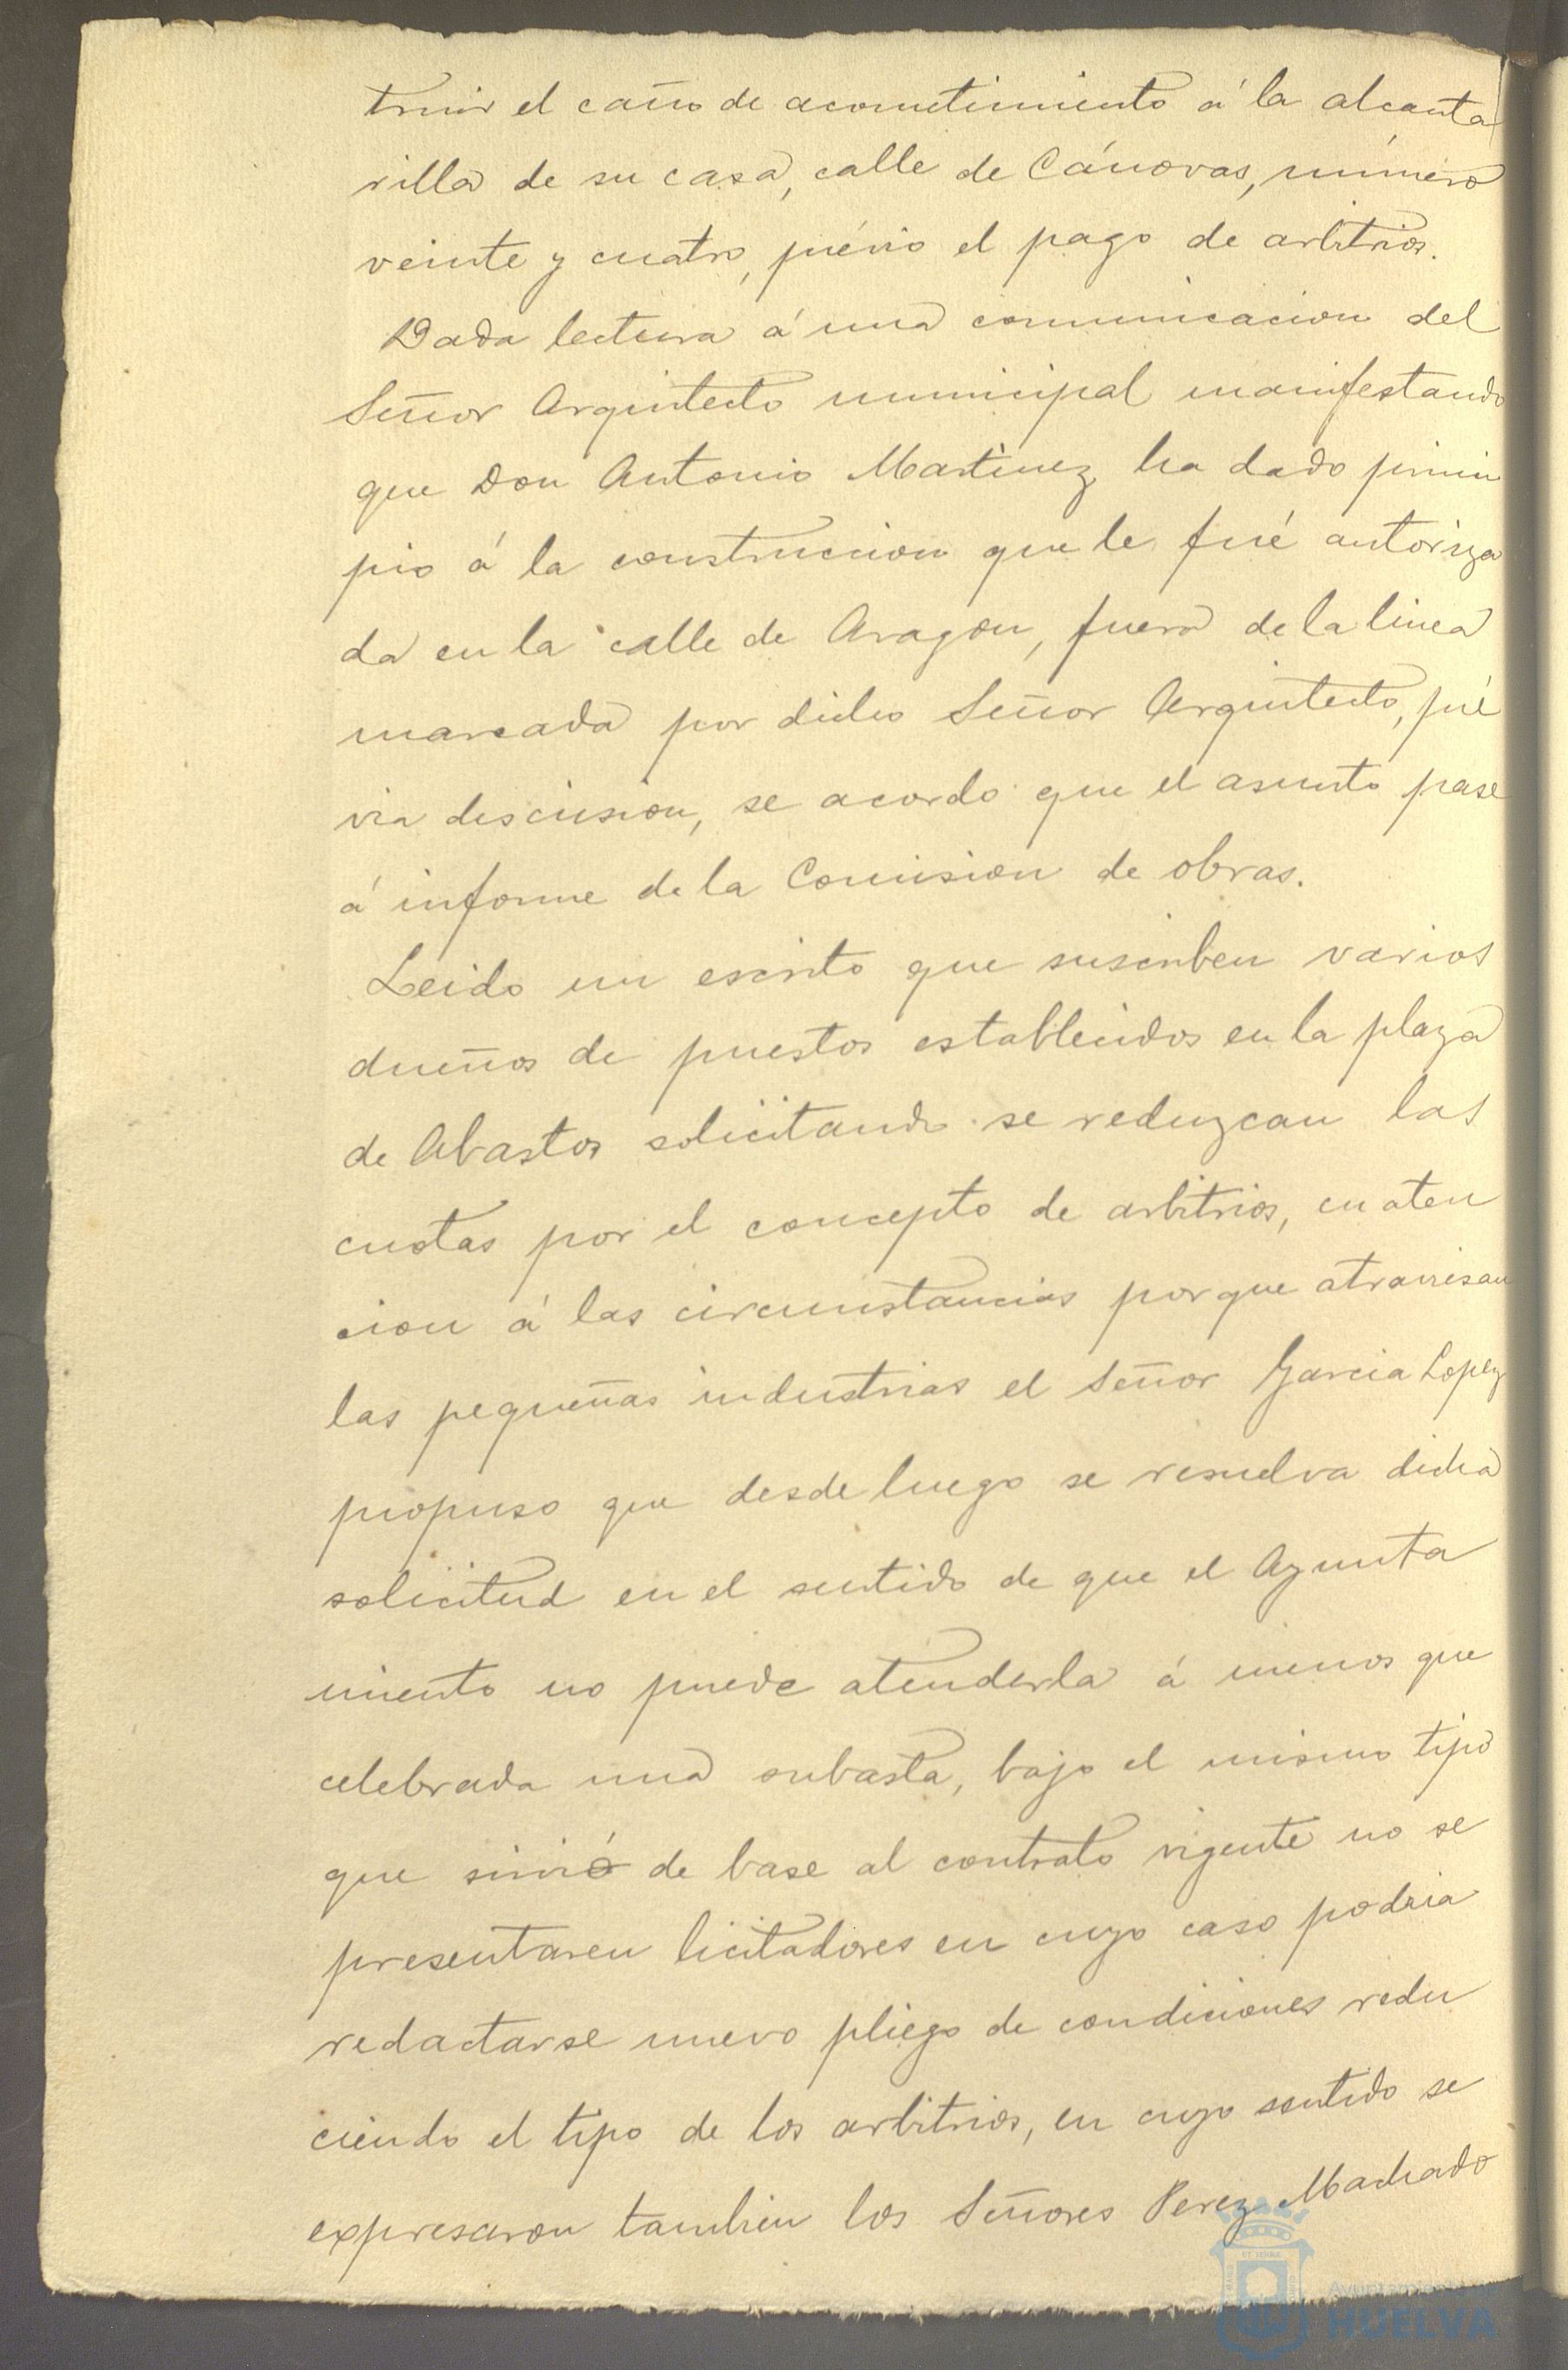 truir el caño de acometimiento á la alcanta
rilla de su casa, calle de Cánovas, número
veinte y cuatro, prévio el pago de arbitrios.
Dada lectura á una comunicacion del
Señor Arquitecto municipal manifestando
que Don Antonio Martinez ha dado princi
pio á la construccion que le fué autoriza
da en la calle de Aragon, fuera de la linea
marcada por dicho Señor Arquitecto, pré
via discusion, se acordo que el asunto pase
á informe de la Comision de obras.
Leido un escrito que suscriben varios
dueños de puestos establecidos en la plaza
de Abastos solicitando se reduzcan las
cuotas por el concepto de arbitrios, en aten
cion á las circunstancias porque atraviesan
las pequeñas industrias el Señor Garcia Lopez
propuso que desde luego se resuelva dicha
solicitud en el sentido de que el Ayunta
miento no puede atenderla á menos que
celebrada una subasta, bajo el mismo tipo
que sirvió de base al contrato vigente no se
presentaren licitadores en cuyo caso podria
redactarse nuevo pliego de condiciones redu
ciendo el tipo de los arbitrios, en cuyo sentido se
expresaron tambien los Señores Perez Machado
Ayuntamiento
HUELVA